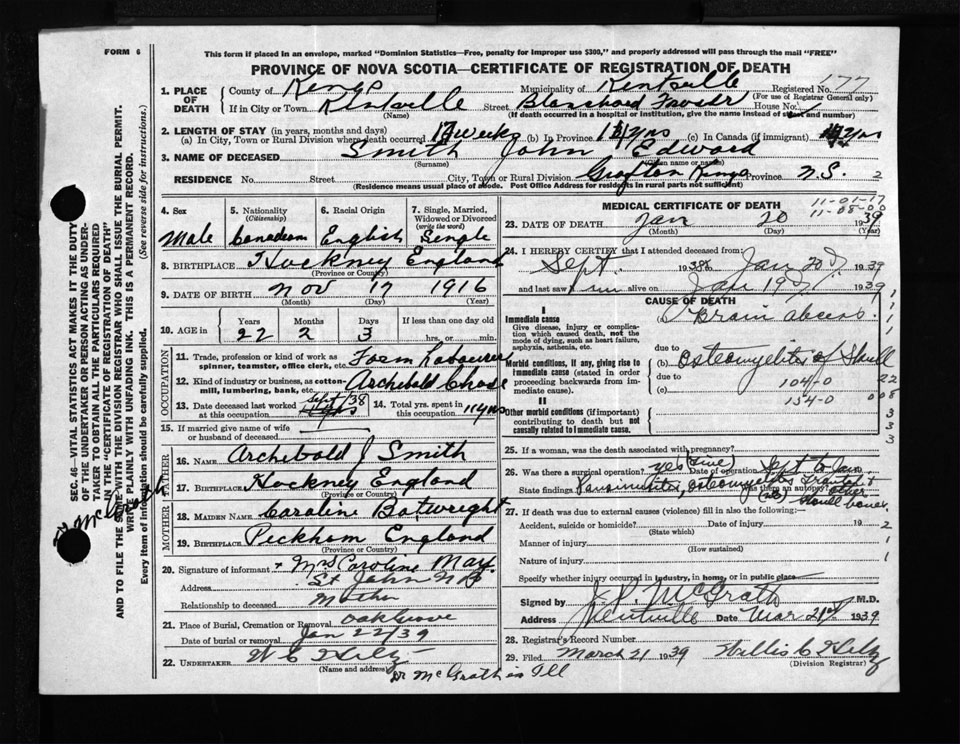 FORM 6
This form if placed in an envelope, marked "Dominion Statistics—Free, penalty for improper use $300," and properly addressed will pass through the mail "FREE"
PROVINCE OF NOVA SCOTIA—CERTIFICATE OF REGISTRATION OF DEATH
177
1. PLACE OF DEATH County of Kings Municipality of Kentville Registered No.
(For use of Registrar General only)
If in City or Town Kentville Street Blanchard House No.
(Name) (If death occurred in a hospital or institution, give the name instead of street and number)
2. LENGTH OF STAY (in years, months and days)
(a) In City, Town or Rural Division where death occurred 17 weeks (b) In Province yrs (c) In Canada (if immigrant) yrs
3. NAME OF DECEASED Smith John Edward
(Surname) (Given name or names)
RESIDENCE No. Street City, Town or Rural Division Grafton Kings Province N.S. 2
(Residence means usual place of abode. Post Office Address for residents in rural parts not sufficient)
4. Sex Male
5. Nationality (Citizenship) Canadian
6. Racial Origin English
7. Single, Married, Widowed or Divorced (write the word) Single
8. BIRTHPLACE Hockney England
(Province or Country)
9. DATE OF BIRTH Nov 17 1916
(Month) (Day) (Year)
10. AGE in Years Months Days If less than one day old
22 2 3 hrs. or min.
OCCUPATION
11. Trade, profession or kind of work as spinner, teamster, office clerk, etc. Farm Labourer
12. Kind of industry or business, as cotton-mill, lumbering, bank, etc. Archibald Chase
13. Date deceased last worked at this occupation Sept 38
14. Total yrs. spent in this occupation 11 yrs
15. If married give name of wife or husband of deceased
FATHER
16. NAME Archibald J Smith
17. BIRTHPLACE Hockney England
(Province or Country)
MOTHER
18. MAIDEN NAME Caroline Botwright
19. BIRTHPLACE Peckham England
(Province or Country)
20. Signature of informant + Mrs Caroline May
Address St John N B
Relationship to deceased Mother
21. Place of Burial, Cremation or Removal Oak Grove
Date of burial or removal Jan 22/39
22. UNDERTAKER W C Hiltz
(Name and address)
Dr McGrath is Ill
MEDICAL CERTIFICATE OF DEATH
11-01-17
11-08-00
23. DATE OF DEATH Jan 20 1939
(Month) (Day) (Year)
24. I HEREBY CERTIFY that I attended deceased from:
Sept. 1938 to Jan 20 1939
and last saw him alive on Jan 19 1939
CAUSE OF DEATH
I
Immediate cause
Give disease, injury or complication which caused death, not the mode of dying, such as heart failure, asphyxia, asthenia, etc.
Brain abcess.
due to
Morbid conditions, if any, giving rise to immediate cause (stated in order proceeding backwards from immediate cause).
(b) Osteomyelitis of Skull
due to 104-0
(c) 154-0
II
Other morbid conditions (if important) contributing to death but not causally related to immediate cause.
25. If a woman, was the death associated with pregnancy?
26. Was there a surgical operation? yes (five) Date of operation Sept to Jan.
State findings Pansinusitis, osteomyelitis frontal + other skull bones
Was there an autopsy?
27. If death was due to external causes (violence) fill in also the following:
Accident, suicide or homicide? Date of injury 19
(State which)
Manner of injury
(How sustained)
Nature of injury
Specify whether injury occurred in industry, in home, or in public place
Signed by J P McGrath M.D.
Address Kentville Date Mar 21st 1939
28. Registrar's Record Number
29. Filed March 21 1939 Willis C Hiltz
(Division Registrar)
SEC. 46—VITAL STATISTICS ACT MAKES IT THE DUTY OF THE UNDERTAKER OR PERSON ACTING AS UNDERTAKER TO OBTAIN ALL THE PARTICULARS REQUIRED IN THE "CERTIFICATE OF REGISTRATION OF DEATH"
AND TO FILE THE SAME WITH THE DIVISION REGISTRAR WHO SHALL ISSUE THE BURIAL PERMIT.
WRITE PLAINLY WITH UNFADING INK. THIS IS A PERMANENT RECORD.
Every item of information should be carefully supplied. (See reverse side for instructions.)
McGrath